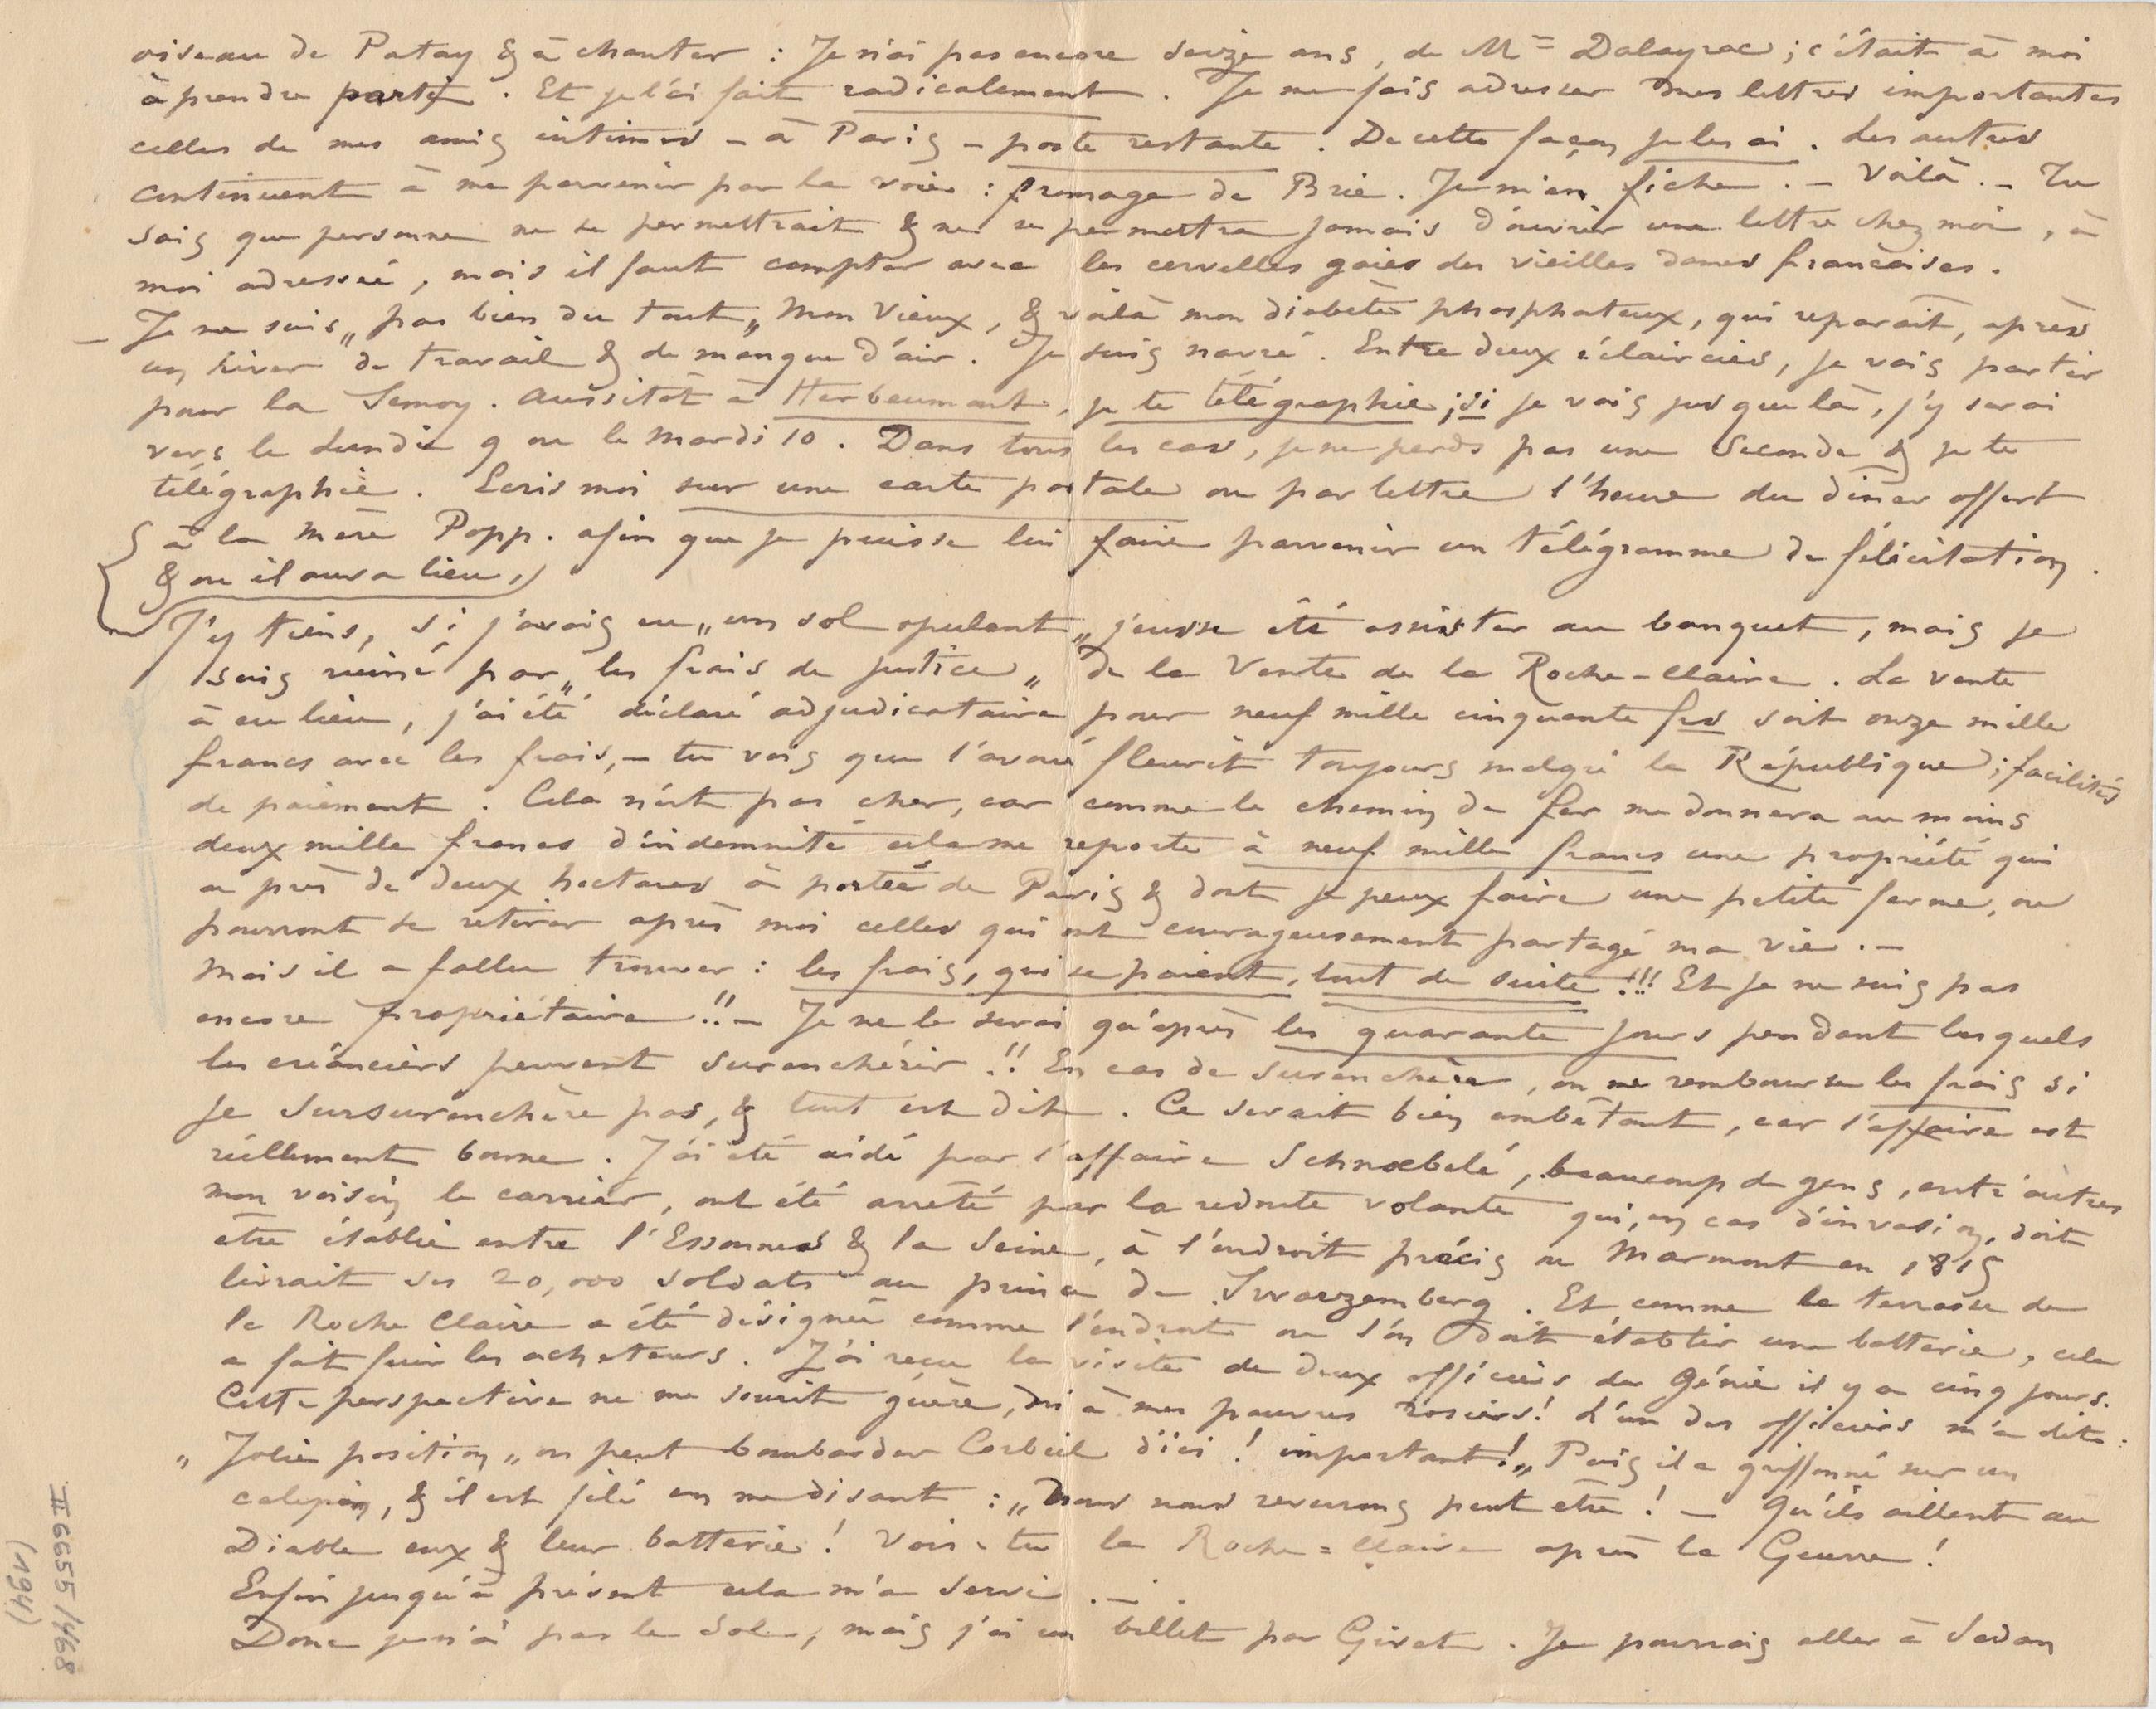 oiseau de Patay & à chanter : Je n'ai pas encore seize ans, de Mr Dalayrac ; c'était à moi
à prendre parti. Et je l'ai fait radicalement. Je me fais adresser mes lettres importantes
celles de mes amis intimes – à Paris – poste restante. De cette façon je les ai. Les autres
continuent à me parvenir par la voie : fromage de Brie. Je m'en fiche. – Voilà. – Tu
sais que personne ne se permettrait & ne se permettra jamais d'ouvrir une lettre chez moi, à
moi adressée, mais il faut compter avec les cervelles gaies des vieilles dames françaises.
– Je ne suis „pas bien du tout„ mon Vieux, & voilà mon diabète phosphateux, qui reparaît, après
un hiver de travail & de manque d'air. Je suis navré. Entre deux éclaircies, je vais partir
pour la Semoy. Aussitôt à Herbeumont, je te télégraphie ; si je vais jusque là, j'y serai
vers le Lundi 9 ou le Mardi 10. Dans tous les cas, je ne perds pas une Seconde & je te
télégraphie. Ecris moi sur une carte postale ou par lettre l'heure du dîner offert
à la mère Popp. afin que je puisse lui faire parvenir un télégramme de félicitation.
& ou il aura lieu,)
J'y tiens, si j'avais eu „un sol opulent„ j'eusse été assister au banquet, mais je
suis ruiné par „les frais de justice„ de la Vente de la Roche-Claire. La vente
à eu lieu, j'ai été déclaré adjudicataire pour neuf mille cinquante frs soit onze mille
francs avec les frais, – tu vois que l'avoué fleurit toujours malgré la République ; facilités
de paiement. Cela n'est pas cher, car comme le chemin de fer me donnera au moins
deux mille francs d'indemnité cela me reporte à neuf mille francs une propriété qui
a près de deux hectares à portée de Paris & dont je peux faire une petite ferme, ou
pourront se retirer après moi celles qui ont courageusement partagé ma vie. –
Mais il a fallu trouver : les frais, qui se paient, tout de suite !!! Et je ne suis pas
encore propriétaire !! – Je ne le serai qu'après les quarante jours pendant lesquels
les créanciers peuvent surenchérir !! En cas de surenchère, on me rembourse les frais si
je sursurenchère pas, & tout est dit. Ce serait bien embêtant, car l'affaire est
réellement bonne. J'ai été aidé par l'affaire Schnœbelé, beaucoup de gens, entr'autres
mon voisin le carrier, ont été arrêté par la redoute volante qui, en cas d'invasion, doit
être établie entre l'Essonnes & la Seine, à l'endroit précis ou Marmont en 1815
livrait ses 20,000 soldats au prince de Swarzemberg. Et comme la terrasse de
la Roche Claire a été désignée comme l'endroit ou l'on doit établir une batterie, cela
a fait fuir les acheteurs. J'ai reçu la visite de deux officiers du Génie il y a cinq jours.
Cette perspective ne me sourit guère, ni à mes pauvres rosiers! L'un des officiers m'a dit :
„ Jolie position„ on peut bombarder Corbeil d'ici ! important !„ Puis il a griffonné sur un
calepin, & il est filé en me disant : „Nous nous reverrons peut être ! – Qu'ils aillent au
Diable eux & leur batterie ! Vois-tu la Roche=Claire après la Guerre !
Enfin jusqu'à présent cela m'a servi. –
Donc je n'ai pas le Sol, mais j'ai un billet par Givet. Je pourrais aller à Sedan
II 6655/468
(194)